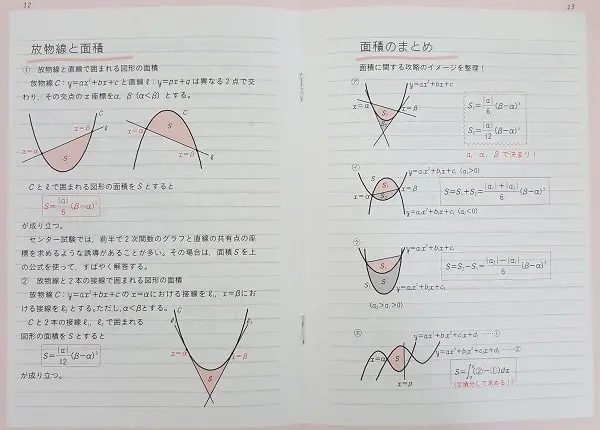 12
放物線と面積
① 放物線と直線で囲まれる図形の面積
放物線C:y=ax²+bx+cと直線ℓ:y=px+qは異なる2点で交
わり、その交点のx座標をα、β(α<β)とする。
C
S
x=α
x=β
ℓ
C
S
x=α
x=β
ℓ
Cとℓで囲まれる図形の面積をSとすると
S=|a|/6(β-α)³
が成り立つ。
センター試験では、前半で2次関数のグラフと直線の共有点の座
標を求めるような誘導があることが多い。その場合は、面積Sを上
の公式を使って、すばやく解答する。
② 放物線と2本の接線で囲まれる図形の面積
放物線C:y=ax²+bx+cのx=αにおける接線をℓ₁、x=βにお
ける接線をℓ₂とする。ただし、α<βとする。
Cと2本の接線ℓ₁、ℓ₂で囲まれる
図形の面積をSとすると
S=|a|/12(β-α)³
が成り立つ。
x=α
x=β
S
13
面積のまとめ
面積に関する攻略のイメージを整理!
㋐
y=ax²+bx+c
x=α
x=β
S₁
S₁=|a|/6(β-α)³
S₂=|a|/12(β-α)³
a、α、βで決まり!
㋑
y=a₁x²+b₁x+c₁ (a₁>0)
S
S₁
x=α
x=β
y=a₂x²+b₂x+c₂ (a₂<0)
S=S₁+S₂=|a₁|+|a₂|/6(β-α)³
㋒
y=a₁x²+b₁x+c₁
S₁
S
y=a₂x²+b₂x+c₂
S=S₂-S₁=|a₂|-|a₁|/6(β-α)³
㋓
y=ax³+b₁x²+c₁x+d₁ ……①
y=ax³+b₂x²+c₂x+d₂ ……②
x=α
S
x=β
x=p
(②-①)dx
(定積分して求める!)